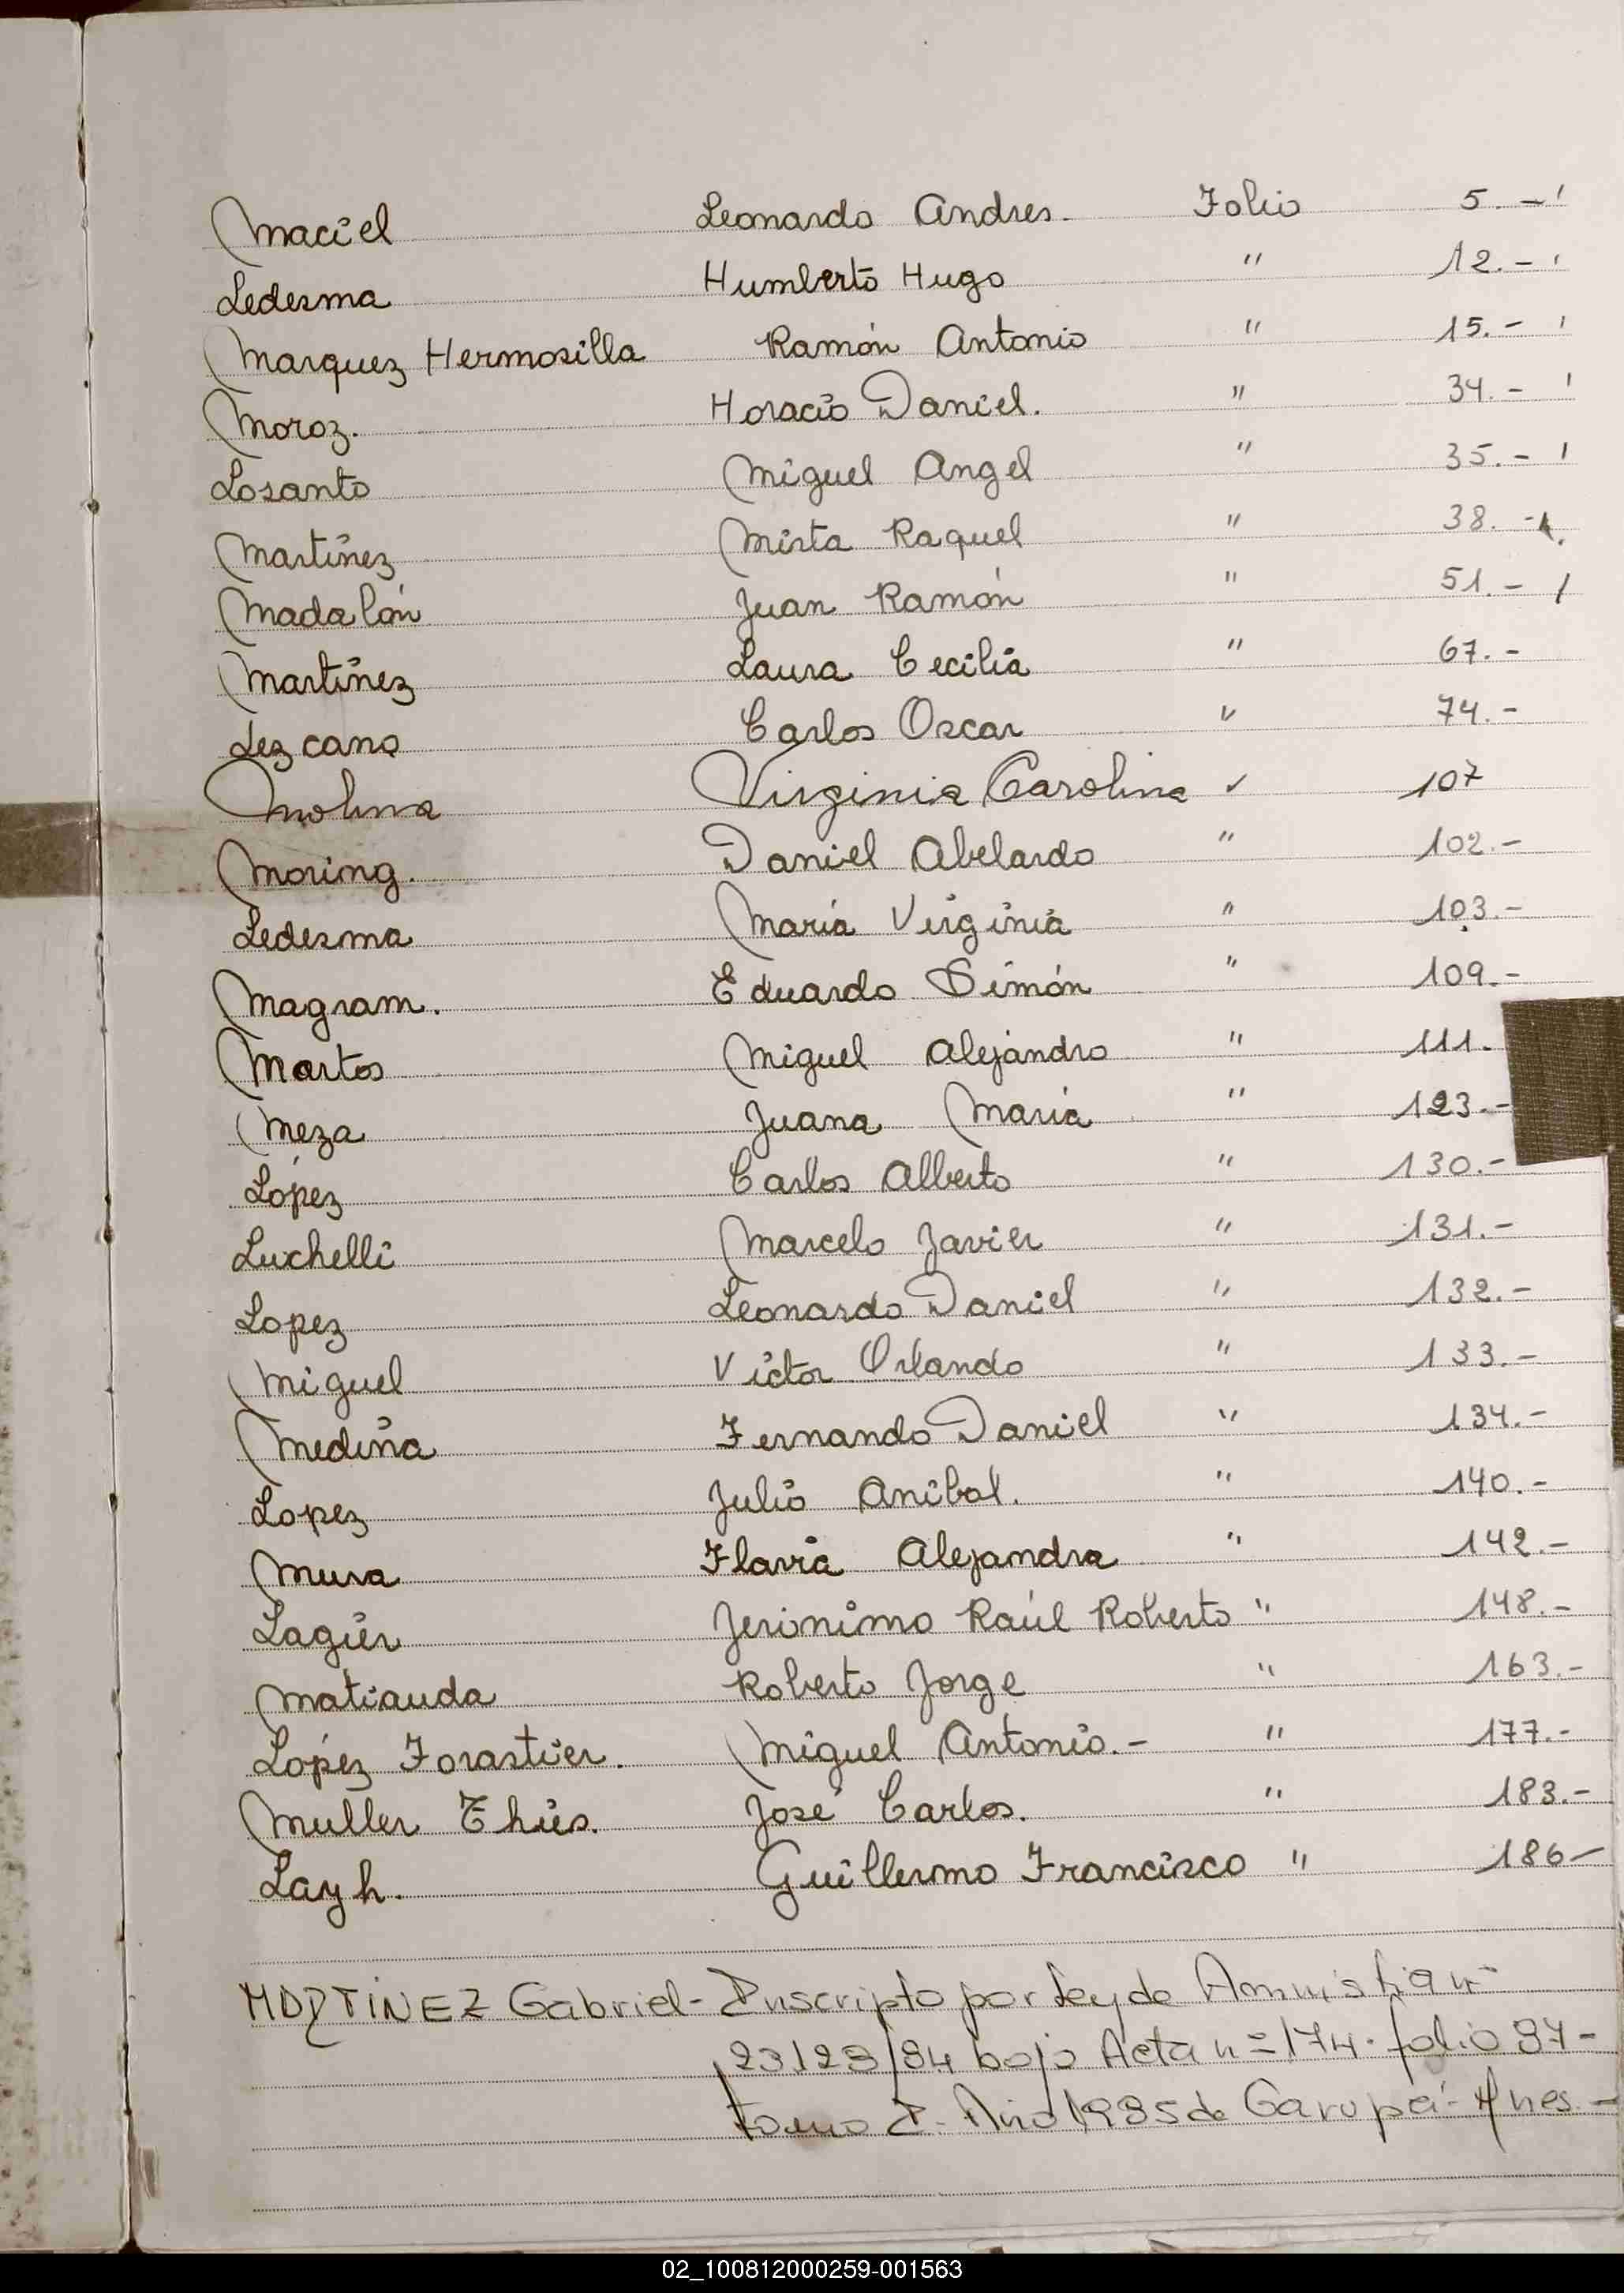 Maciel Leonardo Andres - Folio 5.-
Ledesma Humberto Hugo " 12.-
Marquez Hermosilla Ramón Antonio " 15.-
Moroz. Horacio Daniel. " 34.-
Losanto Miguel Angel " 35.-
Martinez Mirta Raquel " 38.-
Madalón Juan Ramón " 51.-
Martinez Laura Cecilia " 67.-
Lezcano Carlos Oscar " 74.-
Molina Virginia Carolina " 107
Moring. Daniel Abelardo " 102.-
Ledesma María Virginia " 103.-
Magram. Eduardo Simón " 109.-
Martos Miguel Alejandro " 111.
Meza Juana María " 123.-
López Carlos Alberto " 130.-
Luchelli Marcelo Javier " 131.-
Lopez Leonardo Daniel " 132.-
Miguel Victor Orlando " 133.-
Medina Fernando Daniel " 134.-
Lopez Julio Anibal. " 140.-
Mura Flavia Alejandra " 142.-
Lagier Jeronimo Raúl Roberto " 148.-
Matiauda Roberto Jorge " 163.-
López Forastier. Miguel Antonio.- " 177.-
Muller Thies. José Carlos. " 183.-
Layh. Guillermo Francisco " 186-
MARTINEZ Gabriel - Inscripto por Ley de Amnistia n=
bajo Acta n=174. folio 87-
tomo I. Año 1985 de Garupá - Mnes.-
02_100812000259-001563